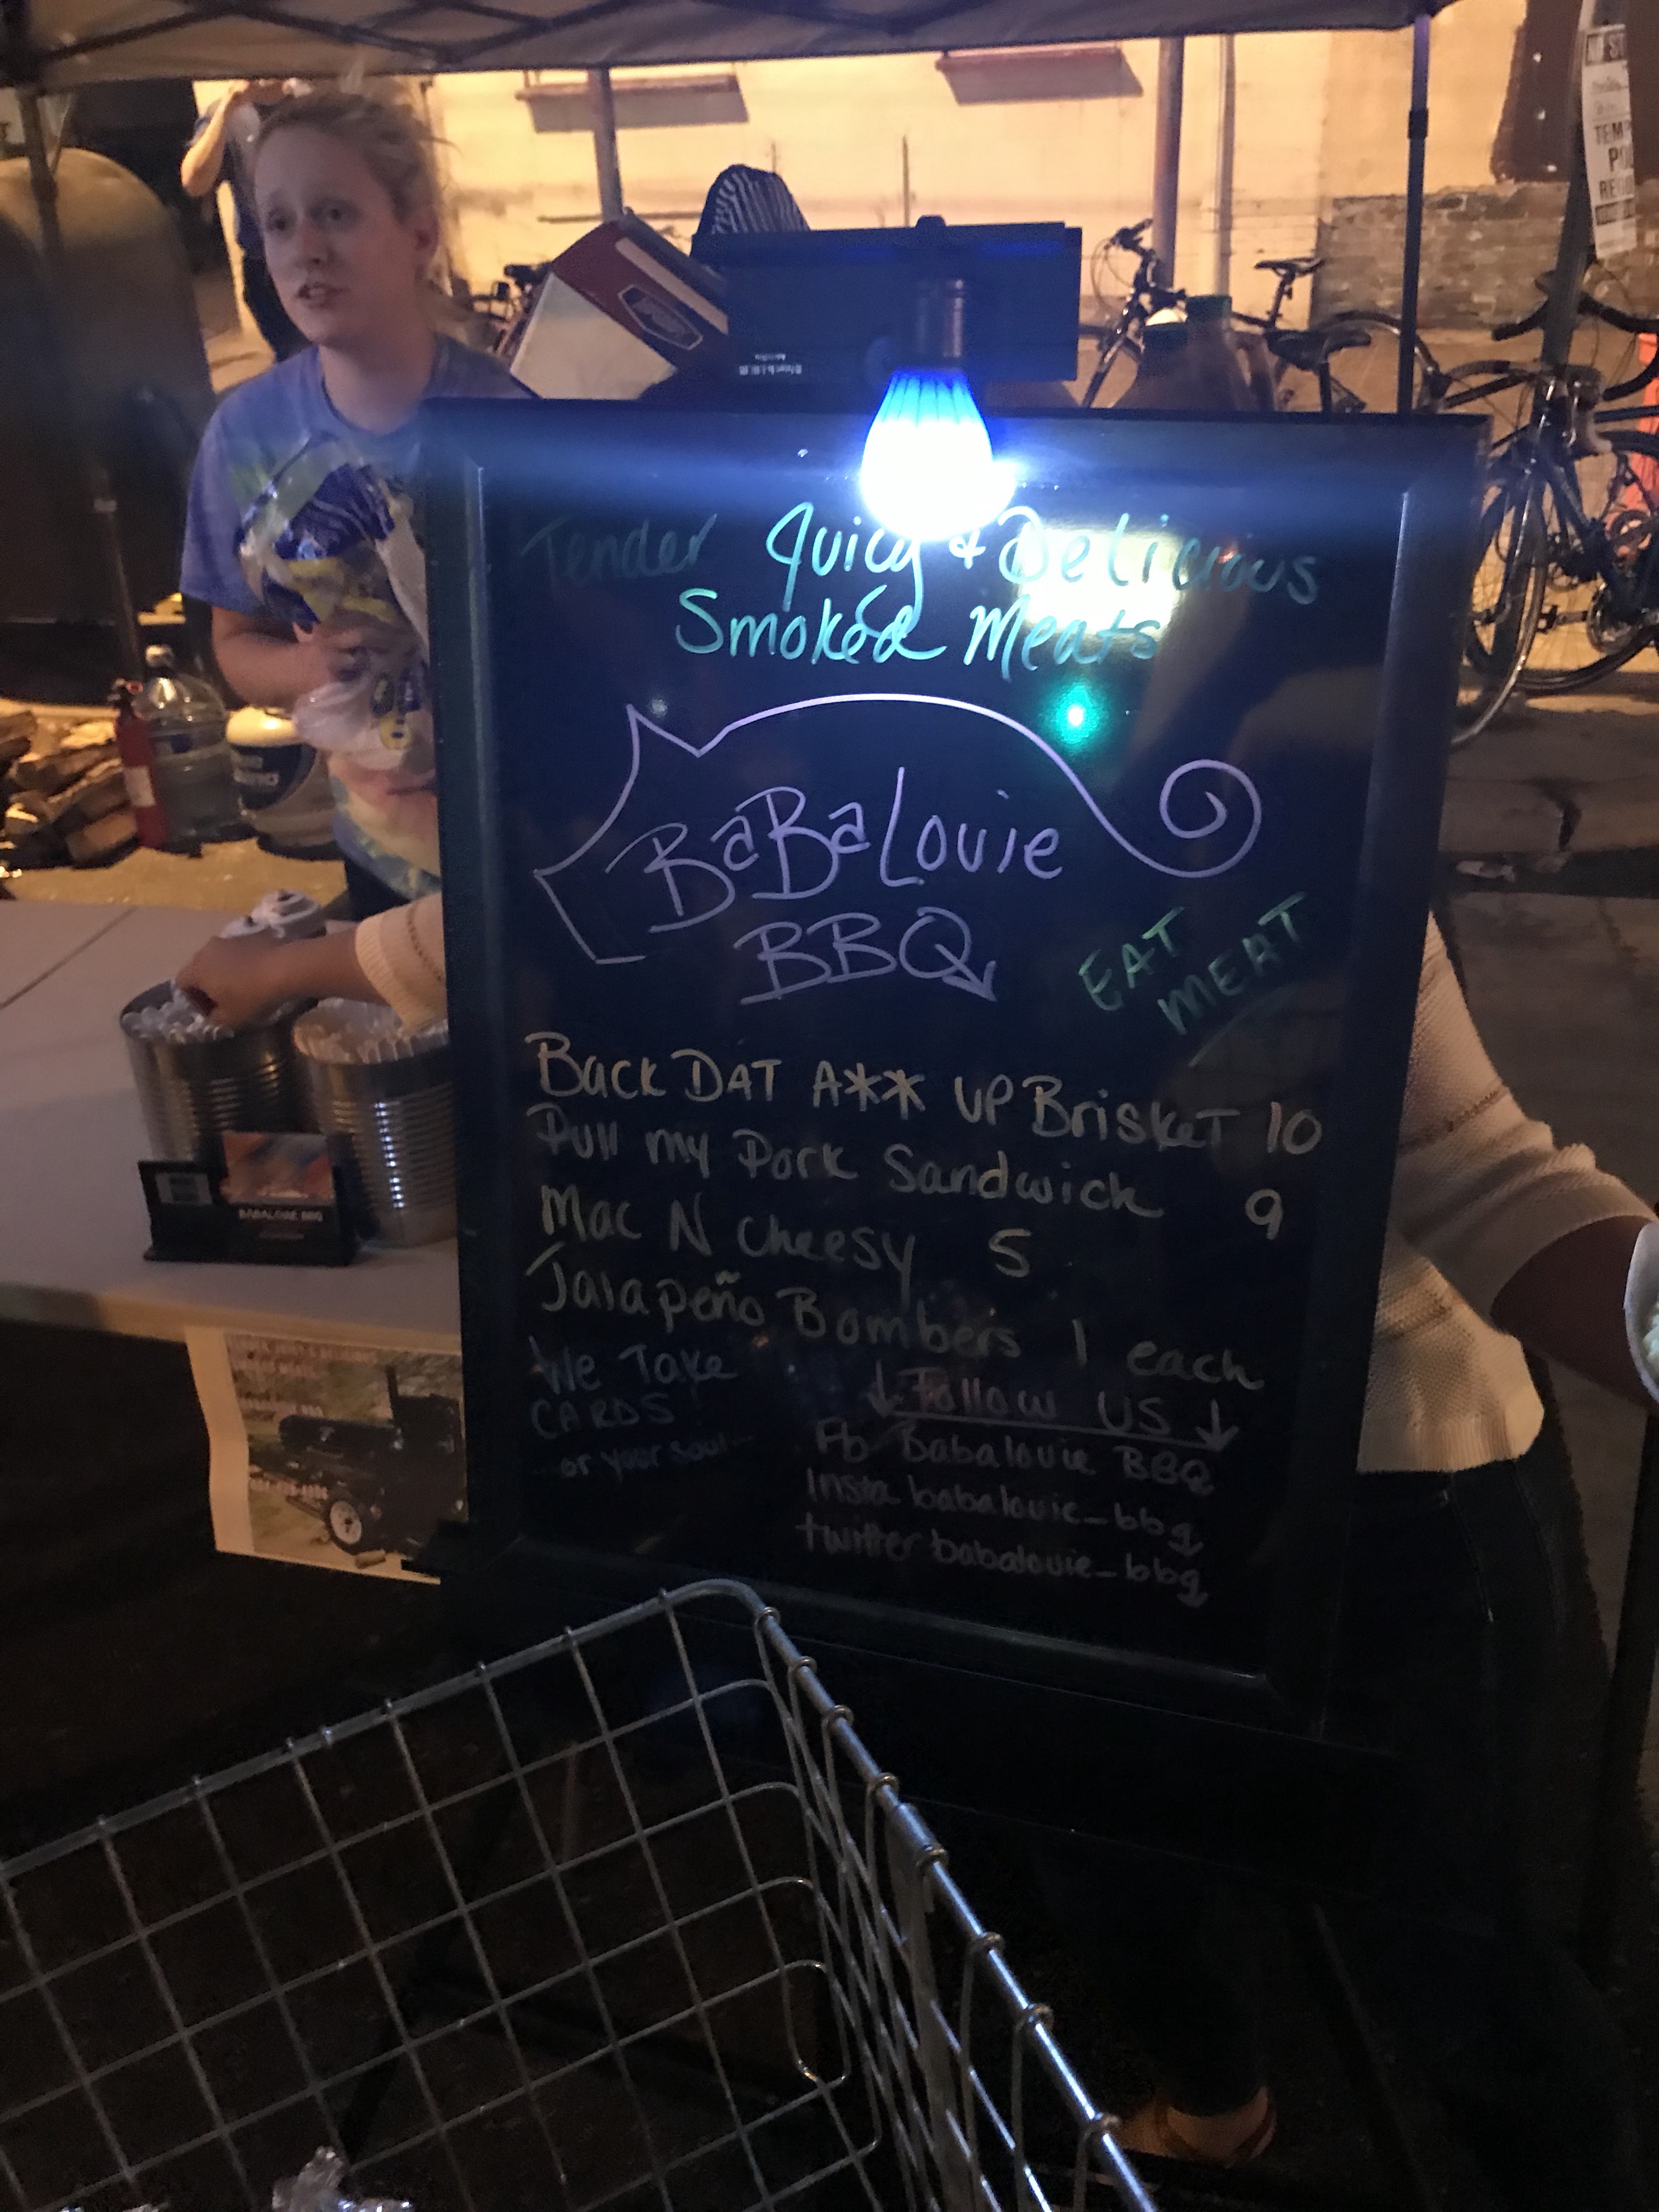 Tender Juicy & Delicious
Smoked Meats
BaBaLouie
BBQ
EAT
MEAT
Back DAT A** UP Brisket 10
Pull my Pork Sandwich 9
Mac N Cheesy 5
Jalapeño Bombers 1 each
We Take
CARDS
...or your soul...
Follow US
Fb Babalouie BBQ
Insta babalouie_bbq
twitter babalouie_bbq
BABALOUIE BBQ